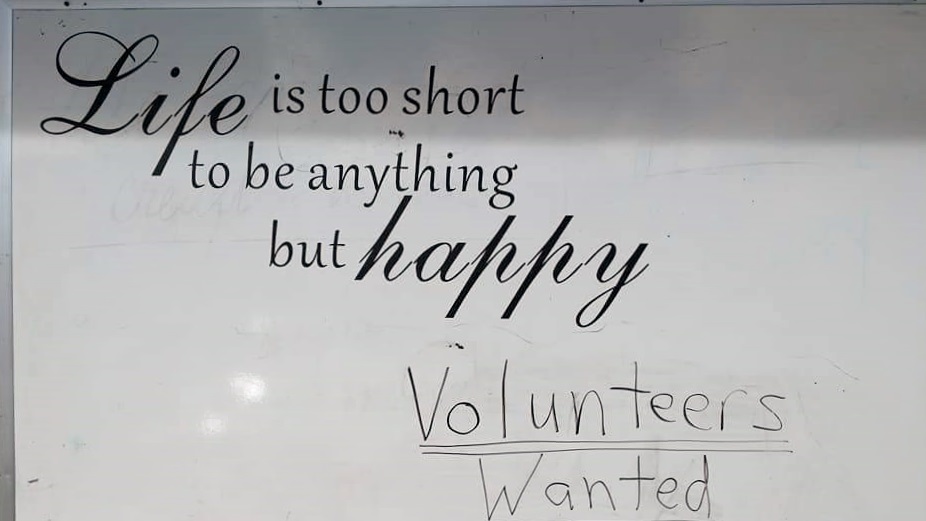 Life is too short
to be anything
but happy
Volunteers
Wanted